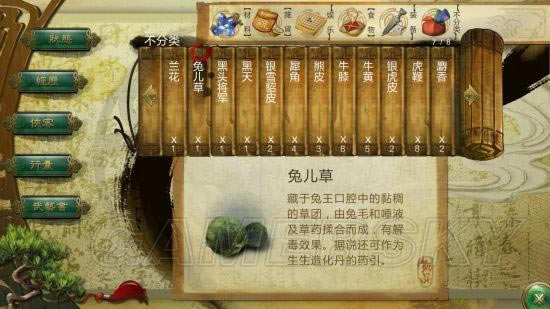 材料
娱乐
食物
装备
不分类
不分类
7 / 8
兰花
兔儿草
黑头将军
黑天
银雪貂皮
犀角
熊皮
牛膝
牛黄
银虎皮
虎鞭
麝香
狀態
經歷
俠客
行囊
武藝書
兔儿草
藏于兔王口腔中的黏稠
的草团，由兔毛和唾液
及草药揉合而成，有解
毒效果。据说还可作为
生生造化丹的药引。
物品
GAMERSKY